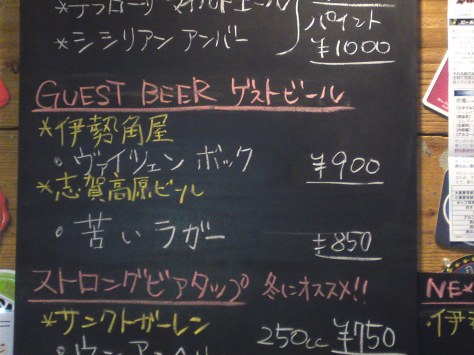 パイント
*シシリアン アンバー
¥1000
GUEST BEER ゲストビール
*伊勢角屋
・ヴァイツェン ボック ¥900
*志賀高原ビール
・苦いラガー ¥850
ストロングビアタップ 冬にオススメ!!
*サンクトガーレン 250cc ¥750
NEX
伊勢